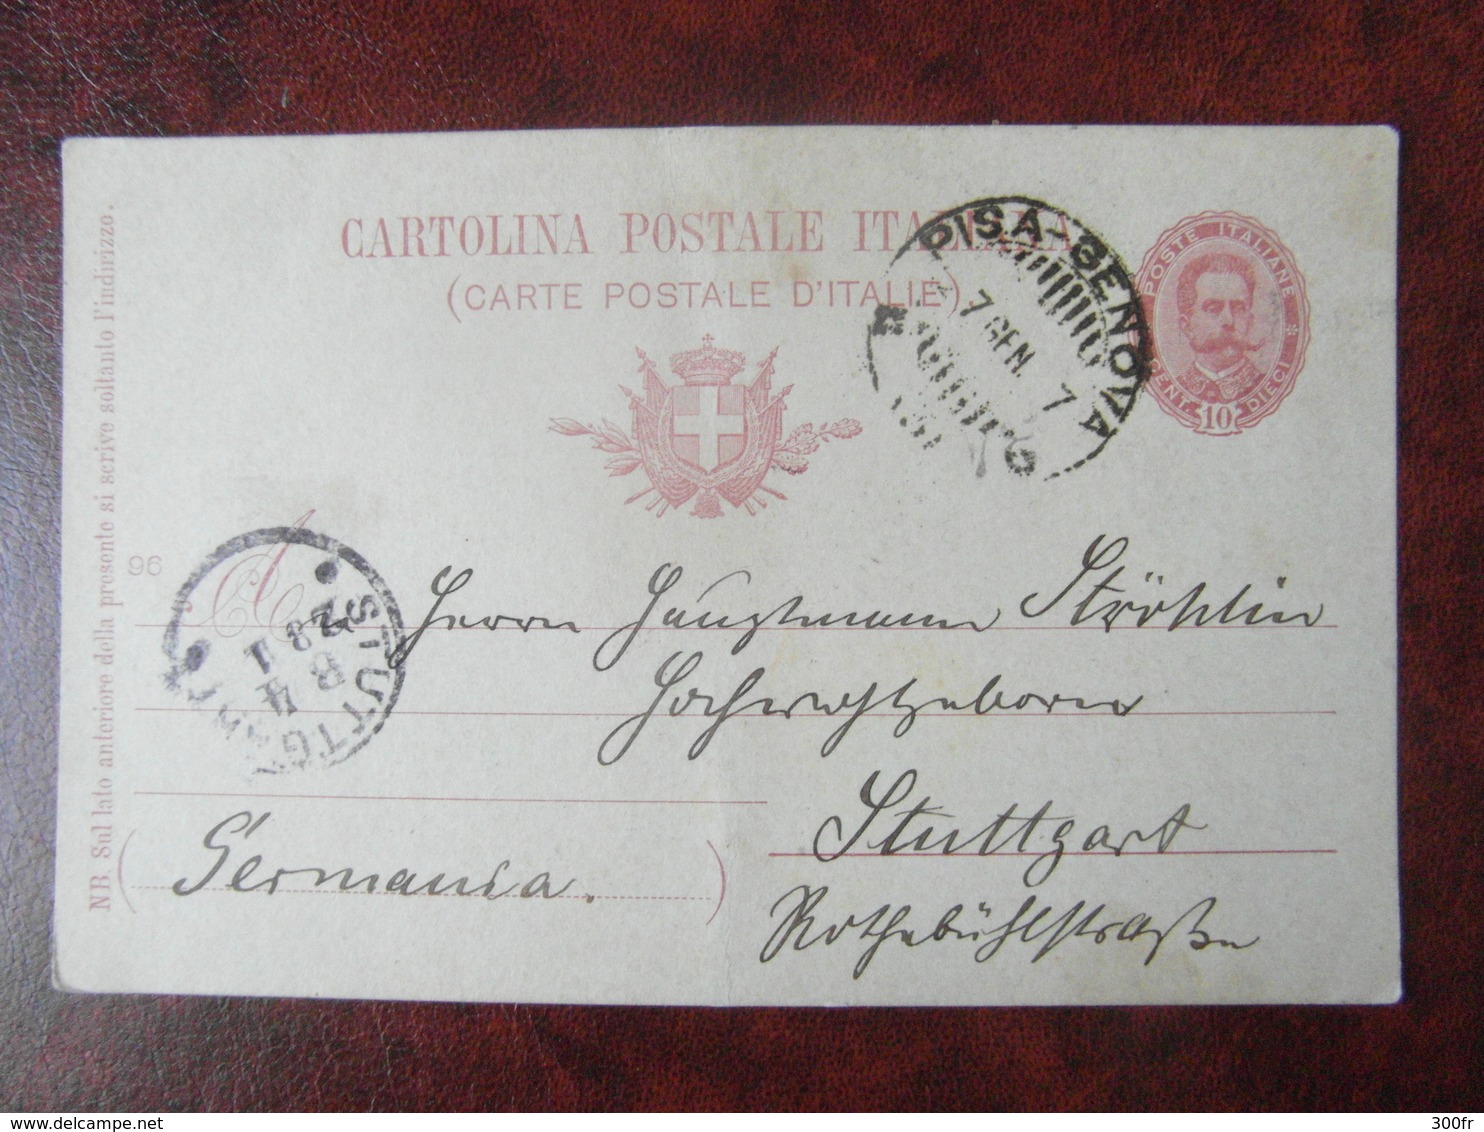 CARTOLINA POSTALE ITALIANA
(CARTE POSTALE D'ITALIE)
POSTE ITALIANE
CENT. 10 DIECI
PISA-GENOVA
7 GEN. 7
NB Sul lato anteriore della presente si scrive soltanto l'indirizzo.
96
A
STUTTGART
4
8
Herrn Hauptmann Ströhlin
Hochwohlgeboren
Stuttgart
(Germania.)
Rothebühlstraße
delcampe.net
300fr